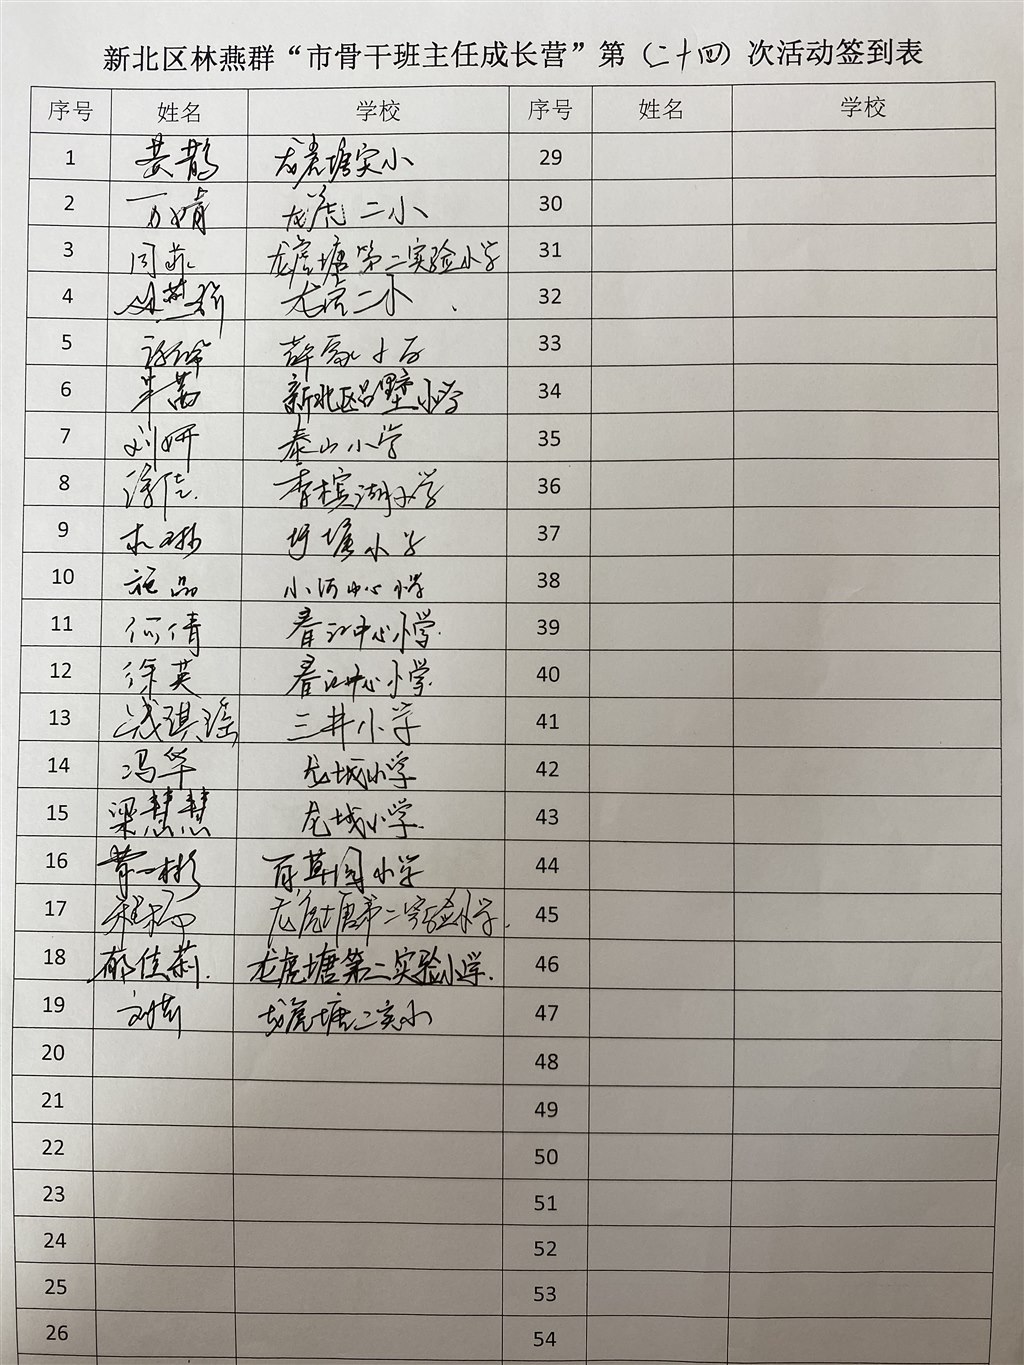 新北区林燕群“市骨干班主任成长营”第（二十四）次活动签到表
序号 姓名 学校 序号 姓名 学校
1 龙虎塘实小 29
2 万婧 龙虎二小 30
3 周菲 龙虎塘第二实验小学 31
4 龙虎二小 32
5 薛家 33
6 新北区吕墅小学 34
7 刘妍 泰山小学 35
8 小学 36
9 圩塘小学 37
10 施品 小河中心小学 38
11 何倩 春江中心小学 39
12 徐英 春江中心小学 40
13 钱琪瑶 三井小学 41
14 冯华 龙城小学 42
15 梁慧慧 龙城小学 43
16 百草园小学 44
17 龙虎塘第二实验小学 45
18 郁佳莉 龙虎塘第二实验小学 46
19 龙虎塘二实小 47
20 48
21 49
22 50
23 51
24 52
25 53
26 54